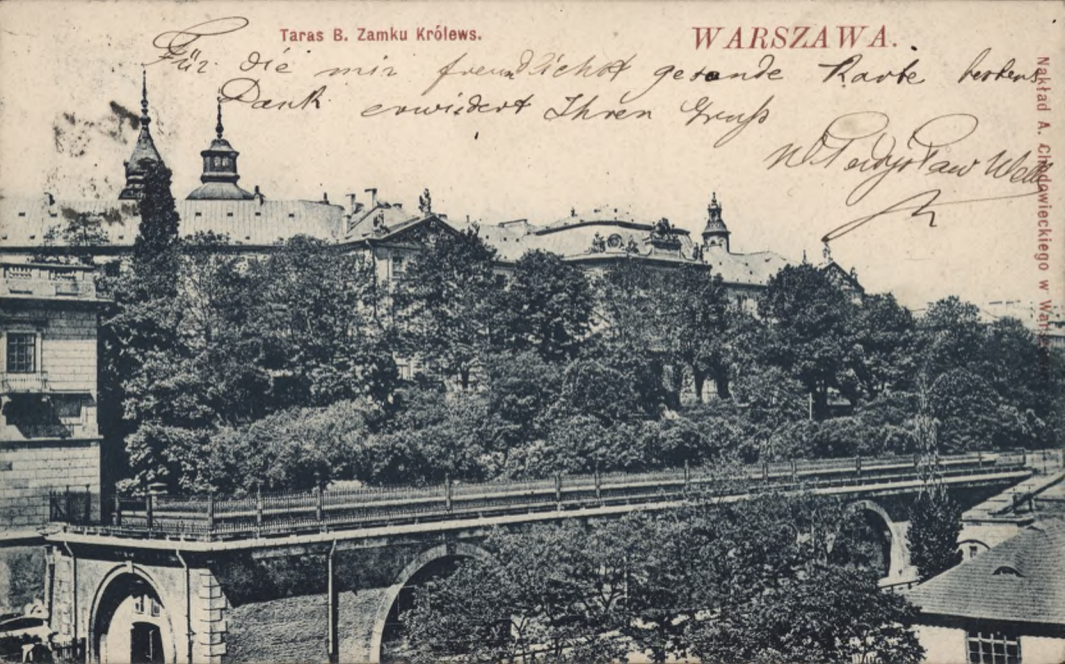 Taras B. Zamku Królews.
WARSZAWA.
Für die mir freundlichst gesande Karte bestens
Dank erwiedert Ihren Gruß
Władysław
Nakład A. Chodowieckiego w